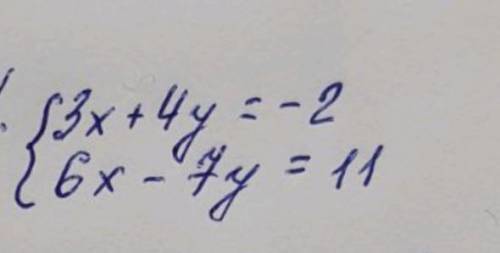 3x + 4y = -2
6x - 7y = 11